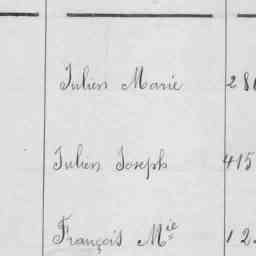 Julien Marie 28
Julien Joseph 415
François Mie 12